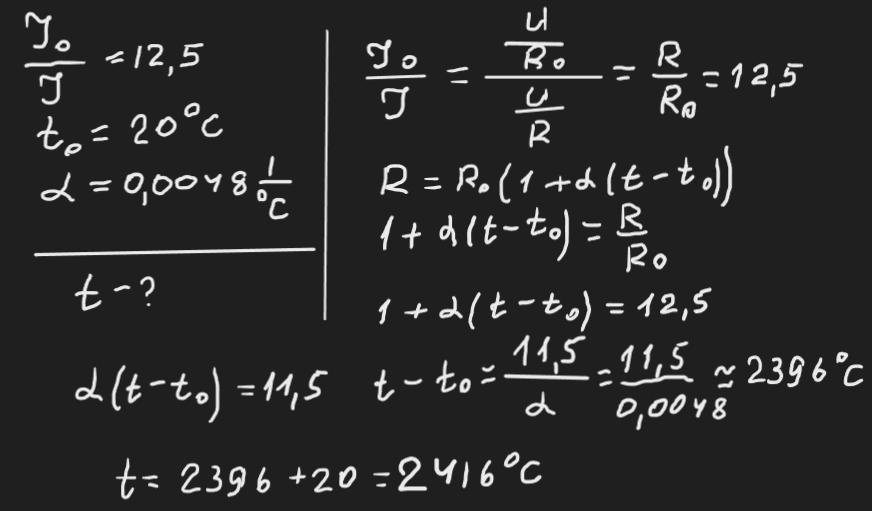 J₀/J = 12,5
t₀ = 20°C
α = 0,0048 1/°C
t - ?
J₀/J = (U/R₀)/(U/R) = R/R₀ = 12,5
R = R₀(1 + α(t - t₀))
1 + α(t - t₀) = R/R₀
1 + α(t - t₀) = 12,5
α(t - t₀) = 11,5
t - t₀ = 11,5/α = 11,5/0,0048 ≈ 2396°C
t = 2396 + 20 = 2416°C